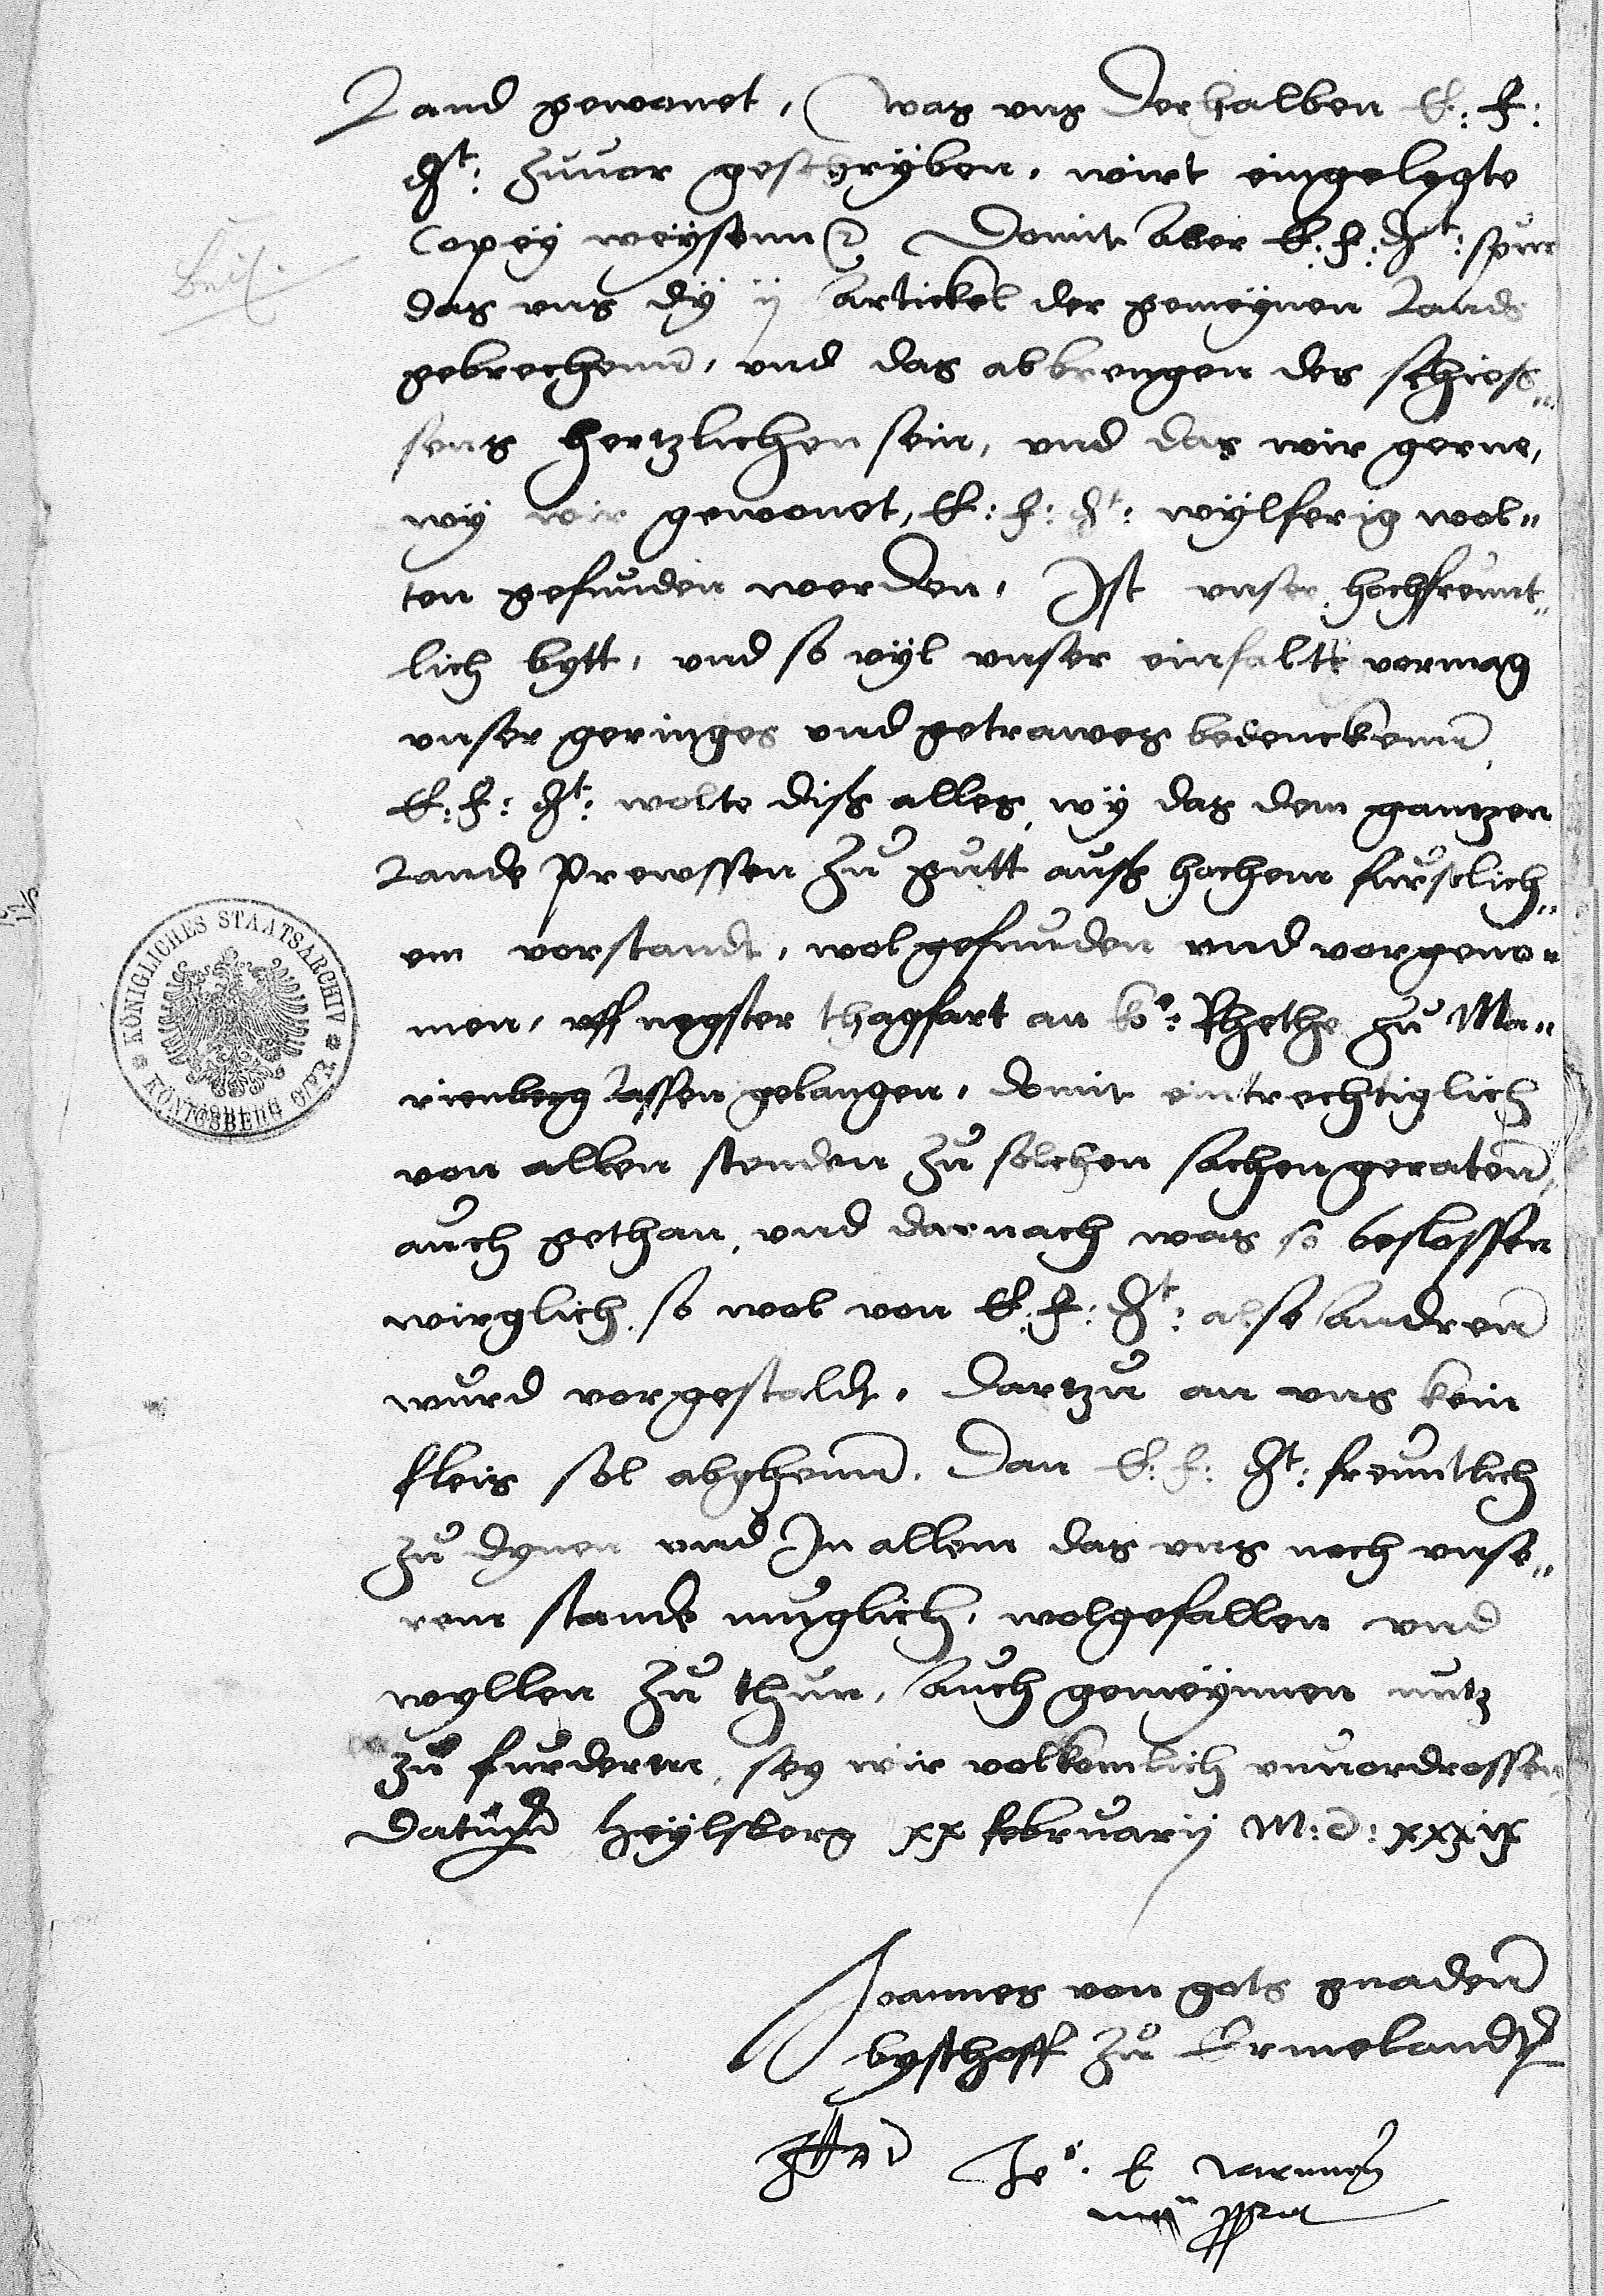 Land gewonet, was uns derhalben E: F:
Gt: zuuor geschryben, wirt eingelegte
Copey weysenn Domit aber E: F: Gt: spur
Beil.
das uns dy ij artickel der gemeynen Lands
gebrechenn, und das abbrengen des schies„
sens hertzlichen sein, und das wir gerne,
wy wir gewonet, E: F: Gt: wylferig wol„
ten gefunden werden, Ist unser hochfreunt„
lich bytt, und so vyl unser einfalt vermag
unser geringes und getrawes bedenckenn
E: F: Gt: wolte diss alles, wy das dem gantzen
Lande Prewssen zu gutt auss hochem furstlich„
em vorstandt, wol gefunden und vorgeno„
men, uff negster thagfart an ko: Rhethe zu Ma„
rienberg lassen gelangen, domit eintrechtiglich
von allen stenden zu solchen sachen geratenn,
auch gethan, und darnach was so beslossen
wirglich so wol von E: F: Gt: alse andrenn
wurd vorgestaldt. Dartzu an uns kein
fleis sol abghenn. Dan E: F: Gt: freuntlich
zu dynen und In allem das uns noch unse„
rem stande muglich, wolgefallen und
wyllen zu thun, auch gemeynnen nutz
zu furdernn, sey wir volkomlich unuordrossen
Datum Heylsberg xx februarij M: D: xxxix
Joannes von gots gnadenn
bysschoff zu Ermelandt
Jo: E Varmien
manu ppria
KÖNIGLICHES STAATSARCHIV
KÖNIGSBERG O/PR